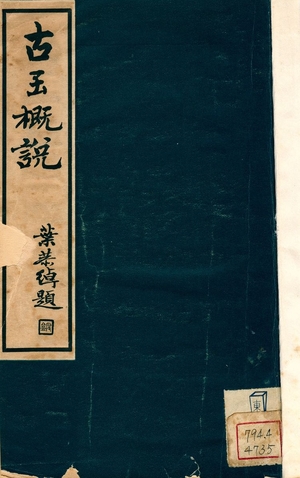 古玉概說
葉恭綽題
東
794.4
4735